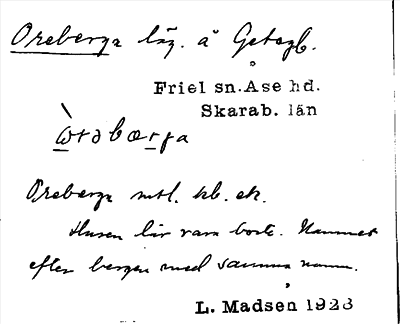 Oreberga läg. å Getagb.
Friel sn. Åse hd.
Skarab. län
Oreberga mtl. kb. ek.
Husen lär vara borta. Namnet
efter bergen med samma namn.
L. Madsen 1928